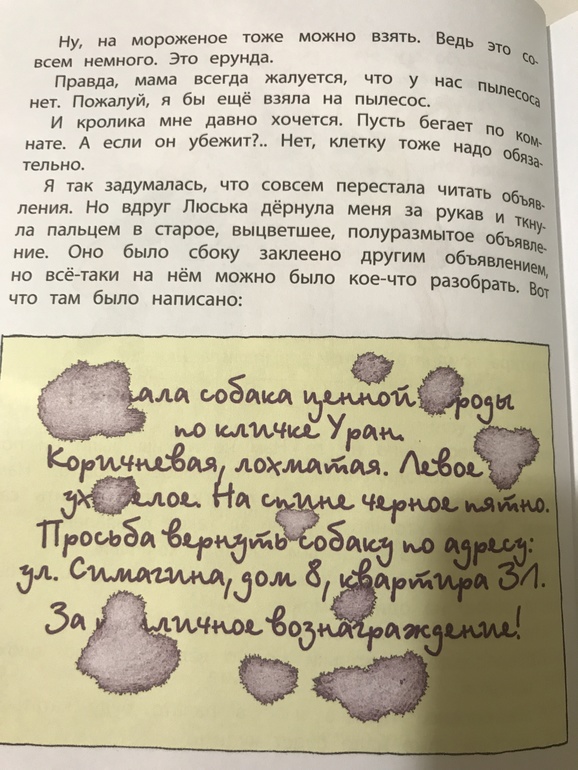 Ну, на мороженое тоже можно взять. Ведь это со-
всем немного. Это ерунда.
Правда, мама всегда жалуется, что у нас пылесоса
нет. Пожалуй, я бы ещё взяла на пылесос.
И кролика мне давно хочется. Пусть бегает по ком-
нате. А если он убежит?.. Нет, клетку тоже надо обяза-
тельно.
Я так задумалась, что совсем перестала читать объяв-
ления. Но вдруг Люська дёрнула меня за рукав и ткну-
ла пальцем в старое, выцветшее, полуразмытое объявле-
ние. Оно было сбоку заклеено другим объявлением,
но всё-таки на нём можно было кое-что разобрать. Вот
что там было написано:
ала собака ценной роды
по кличке Уран.
Коричневая, лохматая. Левое
ух елое. На спине черное пятно.
Просьба вернуть собаку по адресу:
ул. Симагина, дом 8, квартира 31.
За личное вознаграждение!